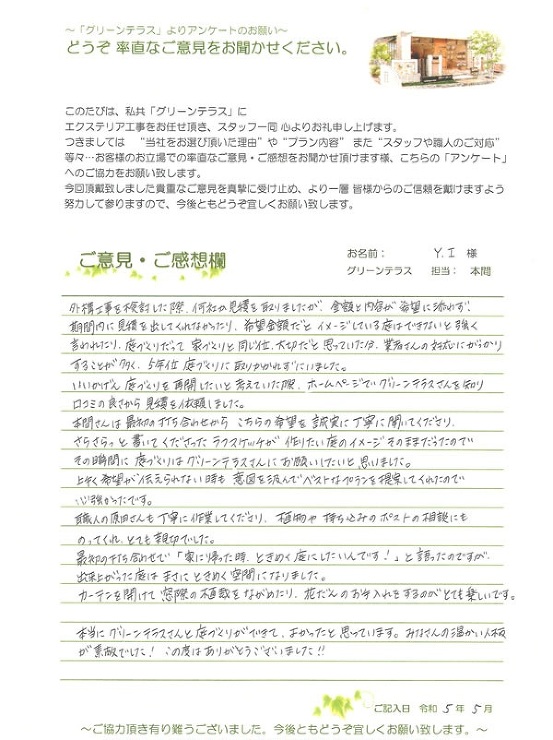 ～「グリーンテラス」よりアンケートのお願い～
どうぞ 率直なご意見をお聞かせください。
このたびは、私共「グリーンテラス」に
エクステリア工事をお任せ頂き、スタッフ一同 心よりお礼申し上げます。
つきましては “当社をお選び頂いた理由” や “プラン内容” また “スタッフや職人のご対応”
等々…お客様のお立場での率直なご意見・ご感想をお聞かせ頂けます様、こちらの「アンケート」
へのご協力をお願い致します。
今回頂戴致しました貴重なご意見を真摯に受け止め、より一層 皆様からのご信頼を戴けますよう
努力して参りますので、今後ともどうぞ宜しくお願い致します。
ご意見・ご感想欄
お名前： Y.I 様
グリーンテラス 担当： 本間
外構工事を検討した際、何社か見積を取りましたが、金額と内容が希望に添わず、
期間内に見積を出してくれなかったり、希望金額だとイメージしている庭はできないと強く
言われたり、庭づくりだって家づくりと同じ位、大切だと思っていた分、業者さんの対応にがっかり
することが多く、5年位 庭づくりに取りかかれずにいました。
いいかげん 庭づくりを再開したいと考えていた際、ホームページでグリーンテラスさんを知り
口コミの良さから 見積を依頼しました。
本間さんは 最初の打ち合わせから こちらの希望を 誠実に丁寧に聞いてくださり、
さらさらっと書いてくださった ラフスケッチが 作りたい庭のイメージそのままだったので
その瞬間に 庭づくりは グリーンテラスさんに お願いしたいと思いました。
上手く希望が伝えられない時も 意図を汲んでベストなプランを提案してくれたので
心強かったです。
職人の原田さんも 丁寧に作業してくださり、植物や 持ち込みの ポストの相談にも
のってくれ、とても親切でした。
最初の打ち合わせで「家に帰った時、ときめく庭にしたいんです！」と言ったのですが、
出来上がった庭は まさに ときめく空間になりました。
カーテンを開けて 窓際の植栽をながめたり、花だんのお手入れをするのがとても楽しいです。
本当に グリーンテラスさんと庭づくりができて、よかったと思っています。みなさんの温かい人柄
が素敵でした！ この度は ありがとうございました!!
ご記入日 令和 5 年 5 月
～ご協力頂き有り難うございました。今後ともどうぞ宜しくお願い致します。～